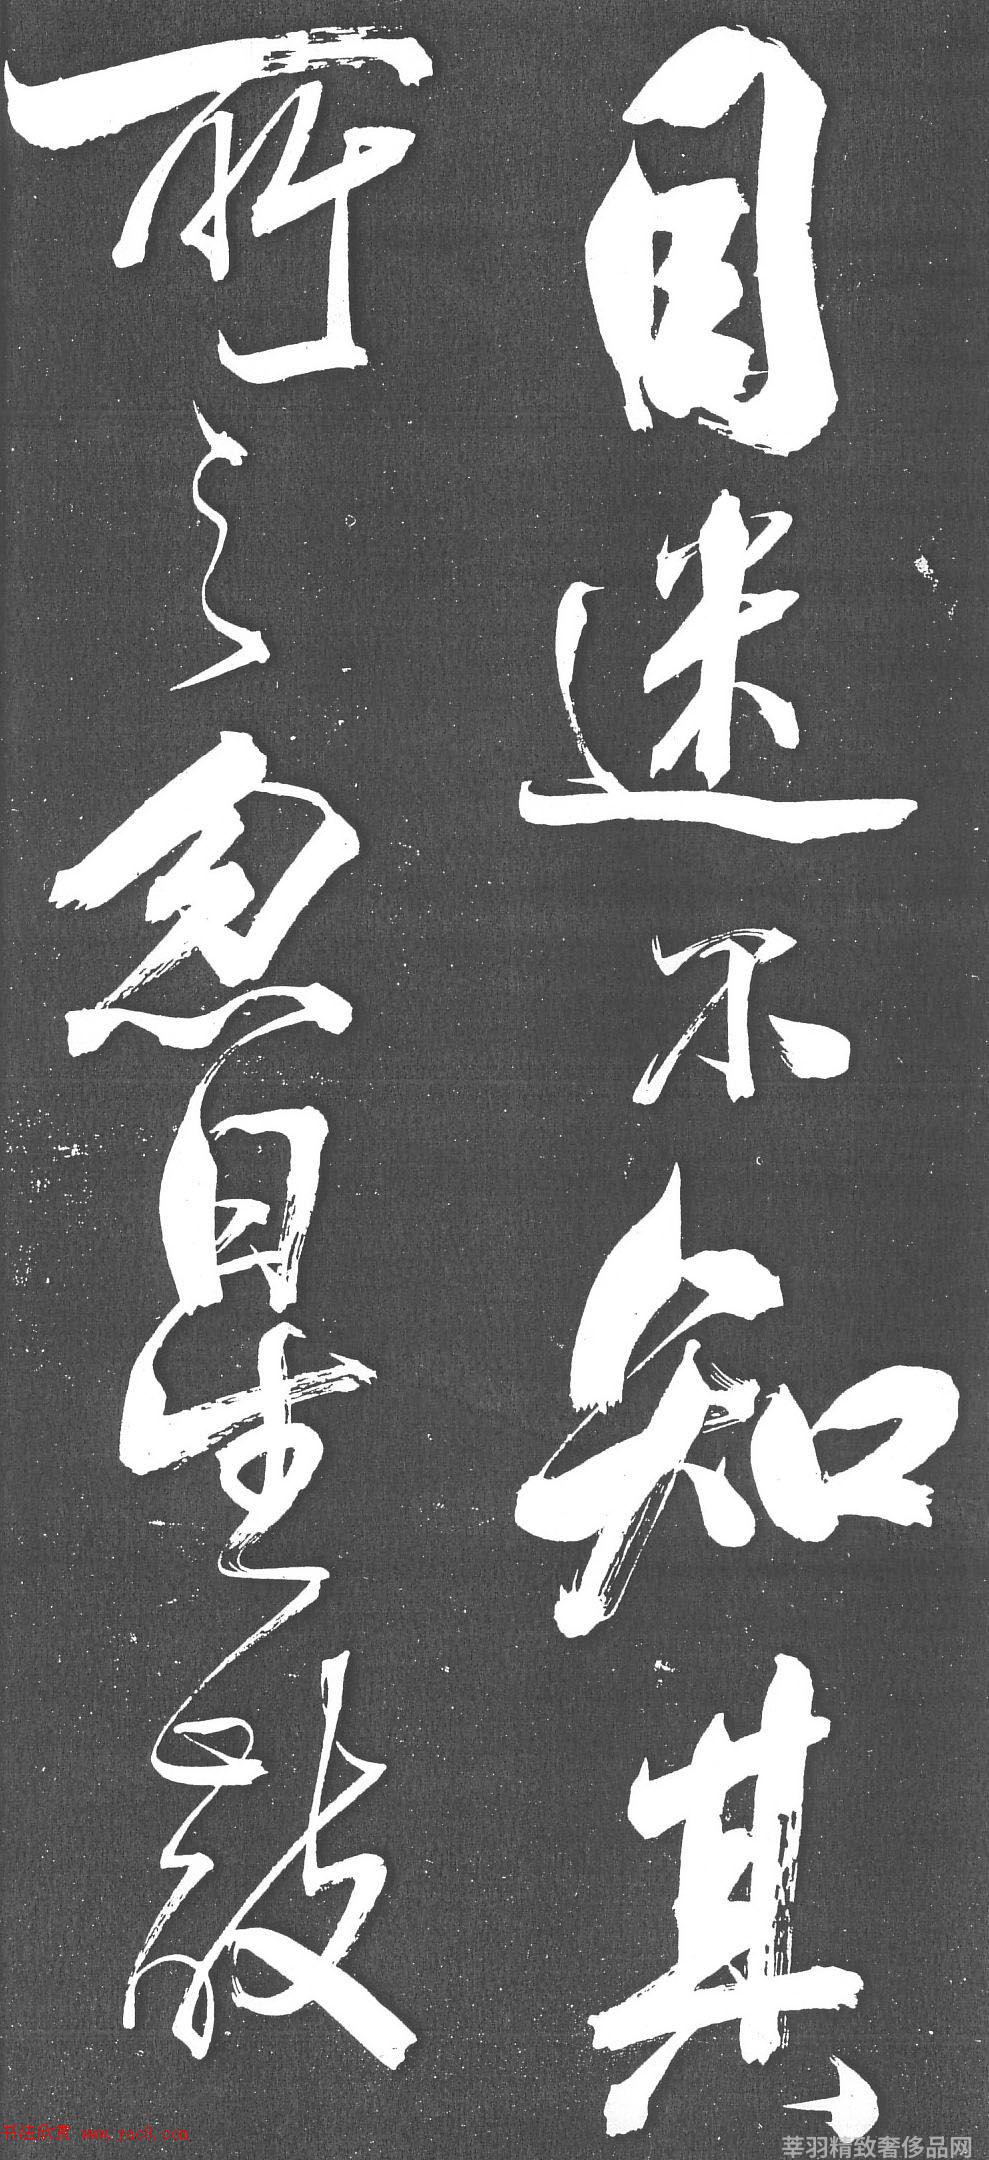 目迷不知其
所之忽星散
书法欣赏 www.yac8.com
莘羽精致奢侈品网